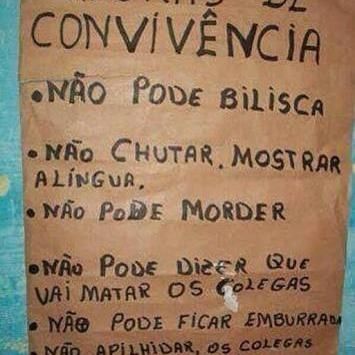 DE
CONVIVÊNCIA
• NÃO PODE BILISCA
• NÃO CHUTAR, MOSTRAR
A LÍNGUA.
• NÃO PODE MORDER
• NÃO PODE DIZER QUE
VAI MATAR OS COLEGAS
• NÃO PODE FICAR EMBURRADA
• NÃO APILHIDAR, OS COLEGAS